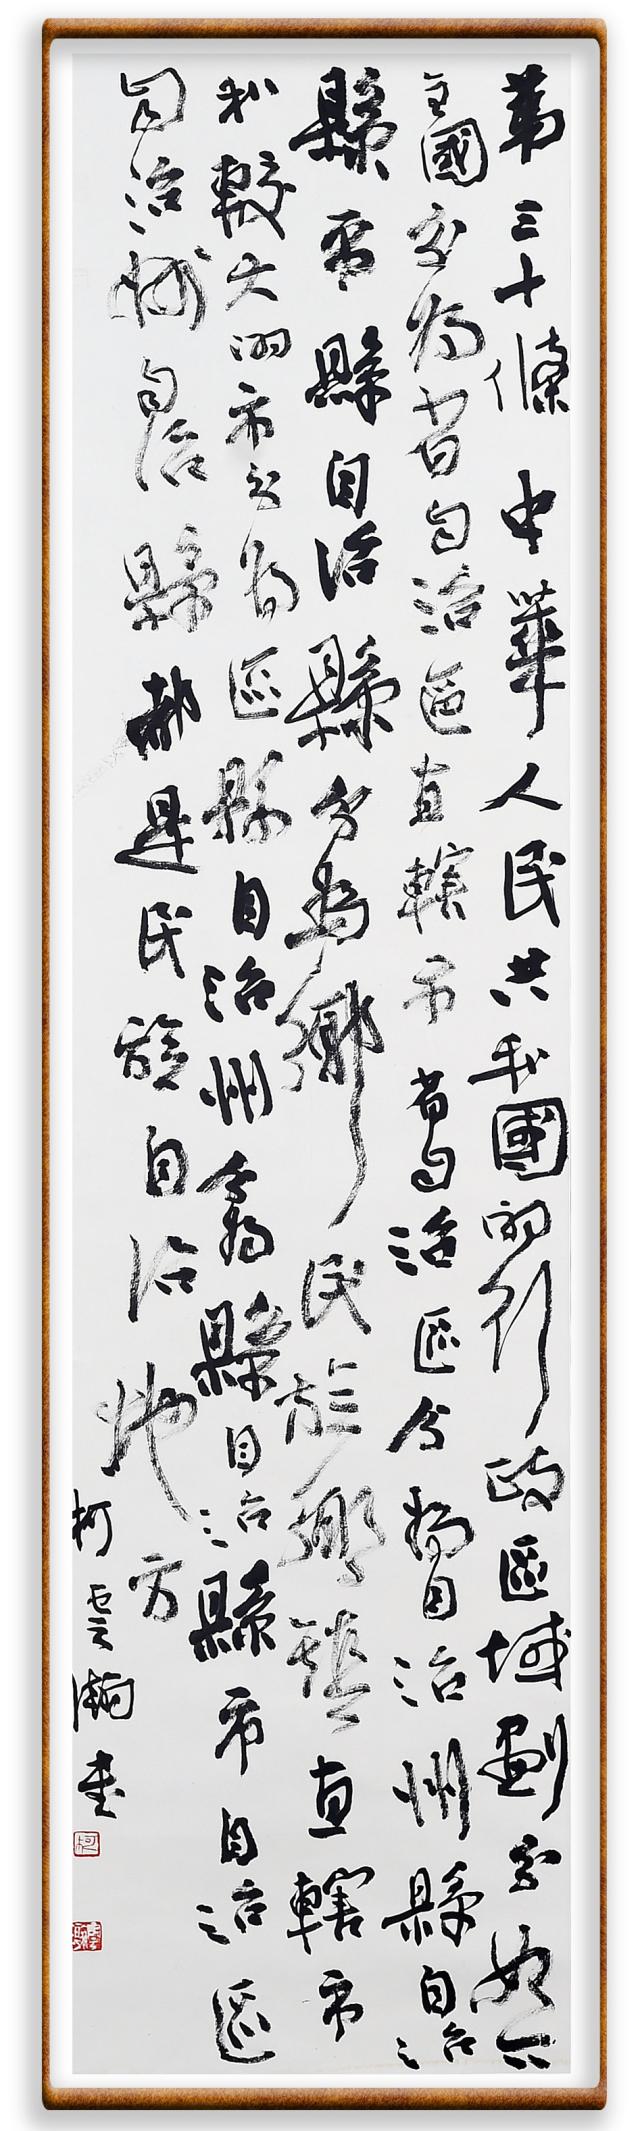 第三十條中華人民共和國的行政區域劃分如下
全國分為省自治區直轄市省自治區分為自治州縣自治
縣市縣自治縣分為鄉民族鄉鎮直轄市
和較大的市分為區縣自治州分為縣自治縣市自治區
自治州自治縣都是民族自治地方
柯雲瀚書